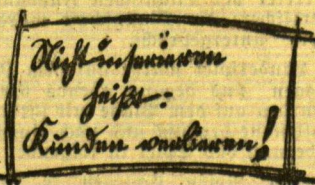 Nicht inserieren
heißt:
Kunden verlieren!